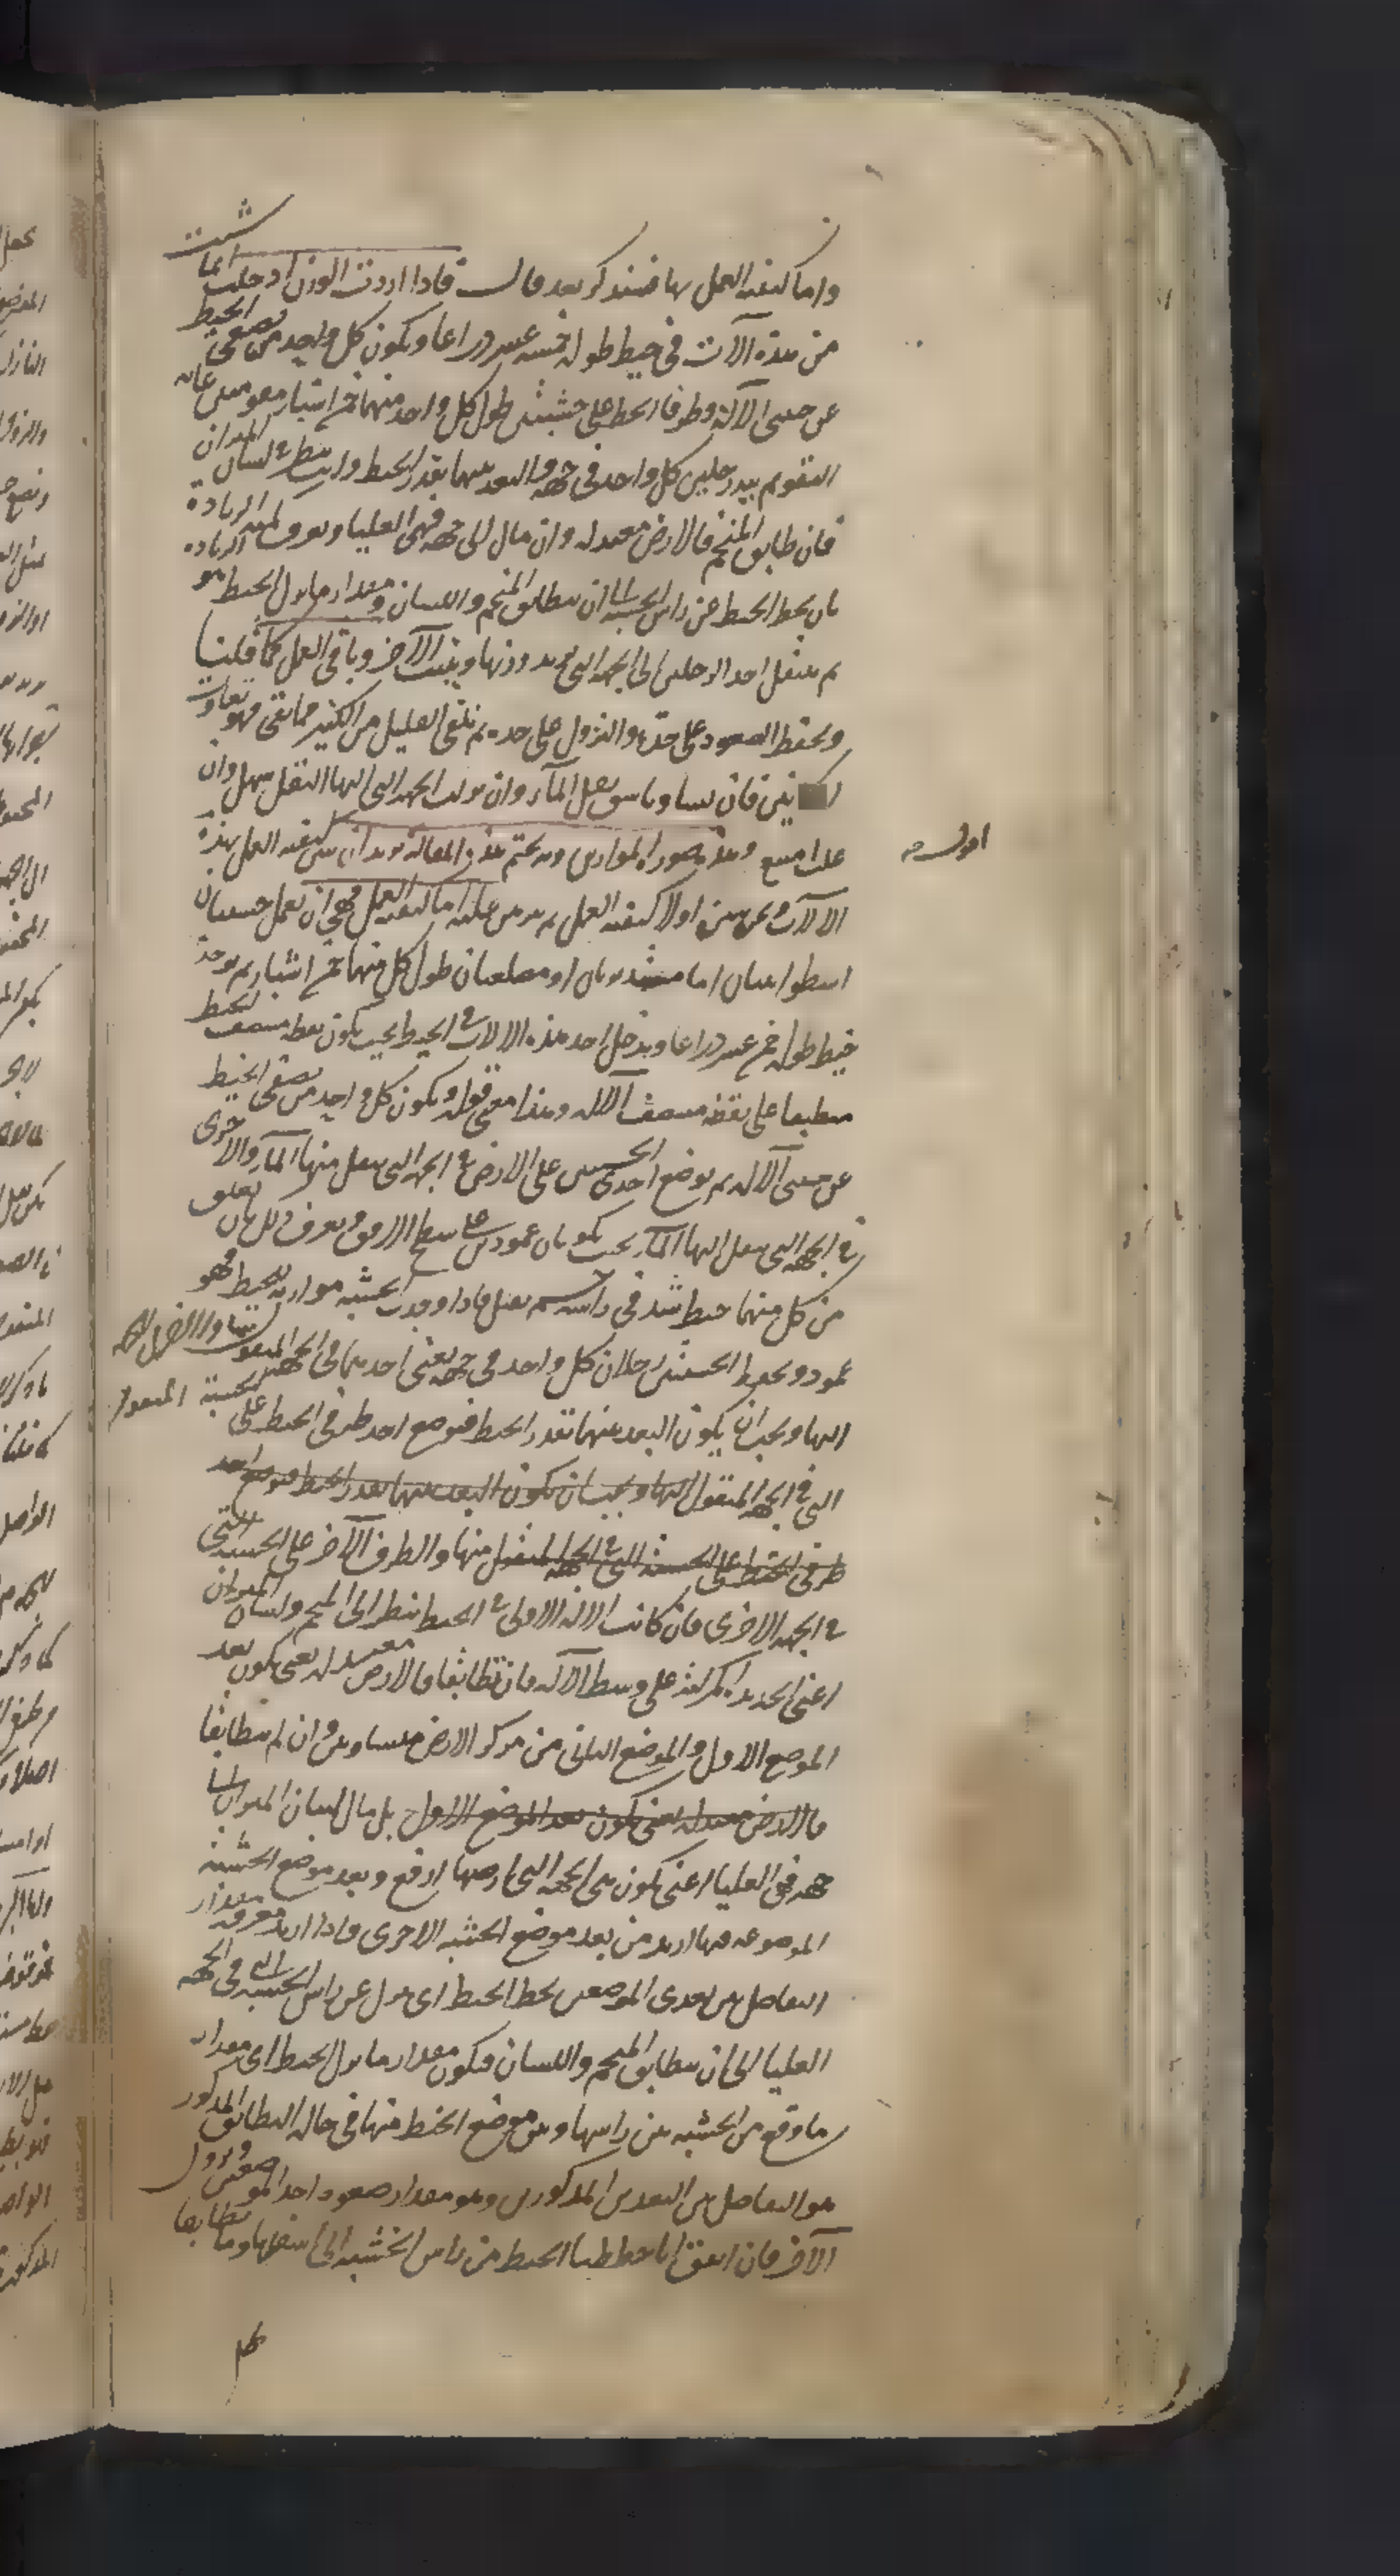 واما كيفية العمل بها فسنذكر بعد قال فاذا اردت الوزن ادخلت ايما شئت
من هذه الآلات في خيط طوله خمسة عشر ذراعا ويكون كل واحد من نصفي الخيط
عن جنبتي الآلة وطرفا الخيط على خشبتين طول كل واحد منهما خمسة اشبار مقومتين غاية
التقويم بيد رجلين كل واحد في جهة والبعد بينهما بقدر الخيط وانت تنظر في لسان الميزان
فان طابق المنجم فالارض معتدلة وان مال الى جهة فهي العليا ويعرف كمية الزيادة
بان يحط الخيط عن راس الخشبة الى ان يطابق المنجم واللسان ومقدار ما نزل الخيط هو الزيادة
ثم ينتقل احد الرجلين الى الجهة التي تريد وزنها ويثبت الآخر وباقي العمل كما قلنا
ويحفظ الصعود على حدة والنزول على حدة ثم تلقى القليل من الكثير فما بقي فهو تفاوت
فان تساويا شق نقل الماء وان نزلت الجهة التي اليها النقل سهل وان
علت امتنع وهذه صورة الموازين وبه نختم هذه المقالة نريد ان نبين كيفية العمل بهذه
اقول
الآلات ونحن نبين اولا كيفية العمل ثم نبرهن عليه اما كيفية العمل فهي ان تعمل خشبتان
اسطوانيتان اما مستديرتان او مضلعتان طول كل منهما خمسة اشبار ثم يوخذ
خيط طوله خمسة عشر ذراعا ويدخل احد هذه الالات في الخيط بحيث يكون نقطة منتصف الخيط
منطبقا على نقطة منتصف الآلة وهذا معنى قوله ويكون كل واحد من نصفي الخيط
عن جنبتي الآلة ثم يوضع احدى الخشبتين على الارض في الجهة التي ينقل منها الماء والاخرى
في الجهة التي ينقل اليها الماء بحيث يكونان عمودين على سطح الافق ويعرف ذلك بان يعلق
من كل منهما خيط شد في راسه ثقل فاذا وجدت الخشبة موازية للخيط فهو
عمود ويحفظ الخشبتين رجلان كل واحد في جهة يعني احدهما في الجهة المنقول
اليها ويجب ان يكون البعد بينهما بقدر الخيط فيوضع احد طرفي الخيط على الخشبة
التي في الجهة المنقول اليها ويجب ان يكون البعد بينهما بقدر الخيط فيوضع احد
طرفي الخيط على الخشبة التي في الجهة المنقول منها والطرف الآخر على الخشبة التي
في الجهة الاخرى فان كانت الآلة الاولى في الخيط ينظر الى المنجم ولسان الميزان
اعني الحديدة المركبة على وسط الآلة فان تطابقا فالارض معتدلة يعني يكون بعد
الموضع الاول والموضع الثاني من مركز الارض متساويين وان لم يتطابقا
فالارض معتدلة يعني يكون بعد الموضع الاول بل مال لسان الميزان الى
جهة فهي العليا اعني يكون هي الجهة التي ارضها ارفع وبعد موضع الخشبة
الموضوعة فيها ازيد من بعد موضع الخشبة الاخرى واذا اريد معرفة مقدار
التفاضل بين بعدي الموضعين يحط الخيط اي ينزل عن راس الخشبة التي في الجهة
العليا الى ان يطابق المنجم واللسان فيكون مقدار ما نزل الخيط اي مقدار
ما وقع من الخشبة بين راسها وبين موضع الخيط منها في حالة التطابق المذكور
هو التفاضل بين البعدين المذكورين وهو مقدار صعود احد الموضعين ونزول
الآخر فان اتفق انا حططنا الخيط من راس الخشبة الى اسفلها وما تطابقا